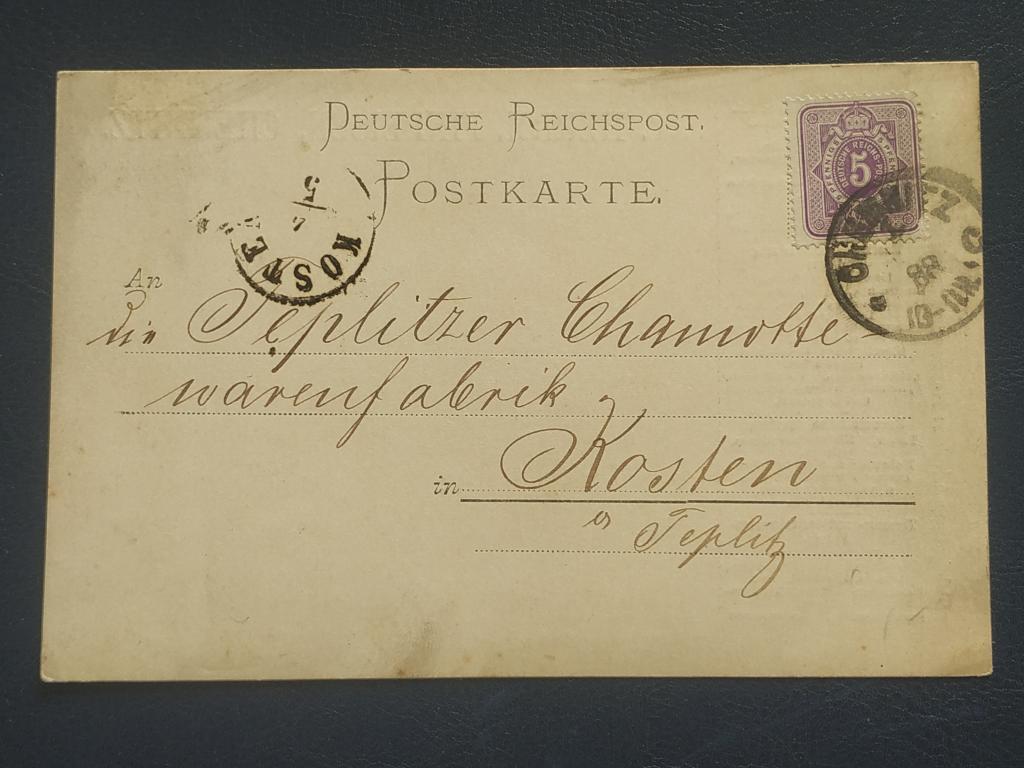 DEUTSCHE REICHSPOST.
POSTKARTE.
5
DEUTSCHE REICHS-POST
PFENNIG
KOSTEN
5/4
88
An
die Teplitzer Chamotte-
warenfabrik
in Kosten
Teplitz